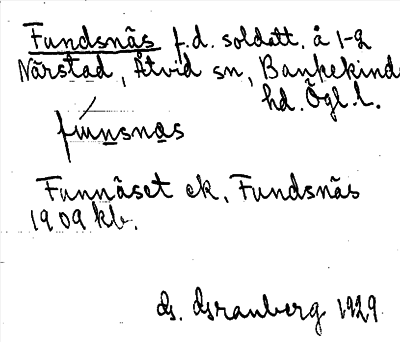 Fundsnäs f.d. soldatt. å 1-2
Närstad, Åtvid sn, Bankekinds
hd. Ögl. l.
funnsnäs
Funnäset ek. Fundsnäs
1909 kb.
ds. 1929